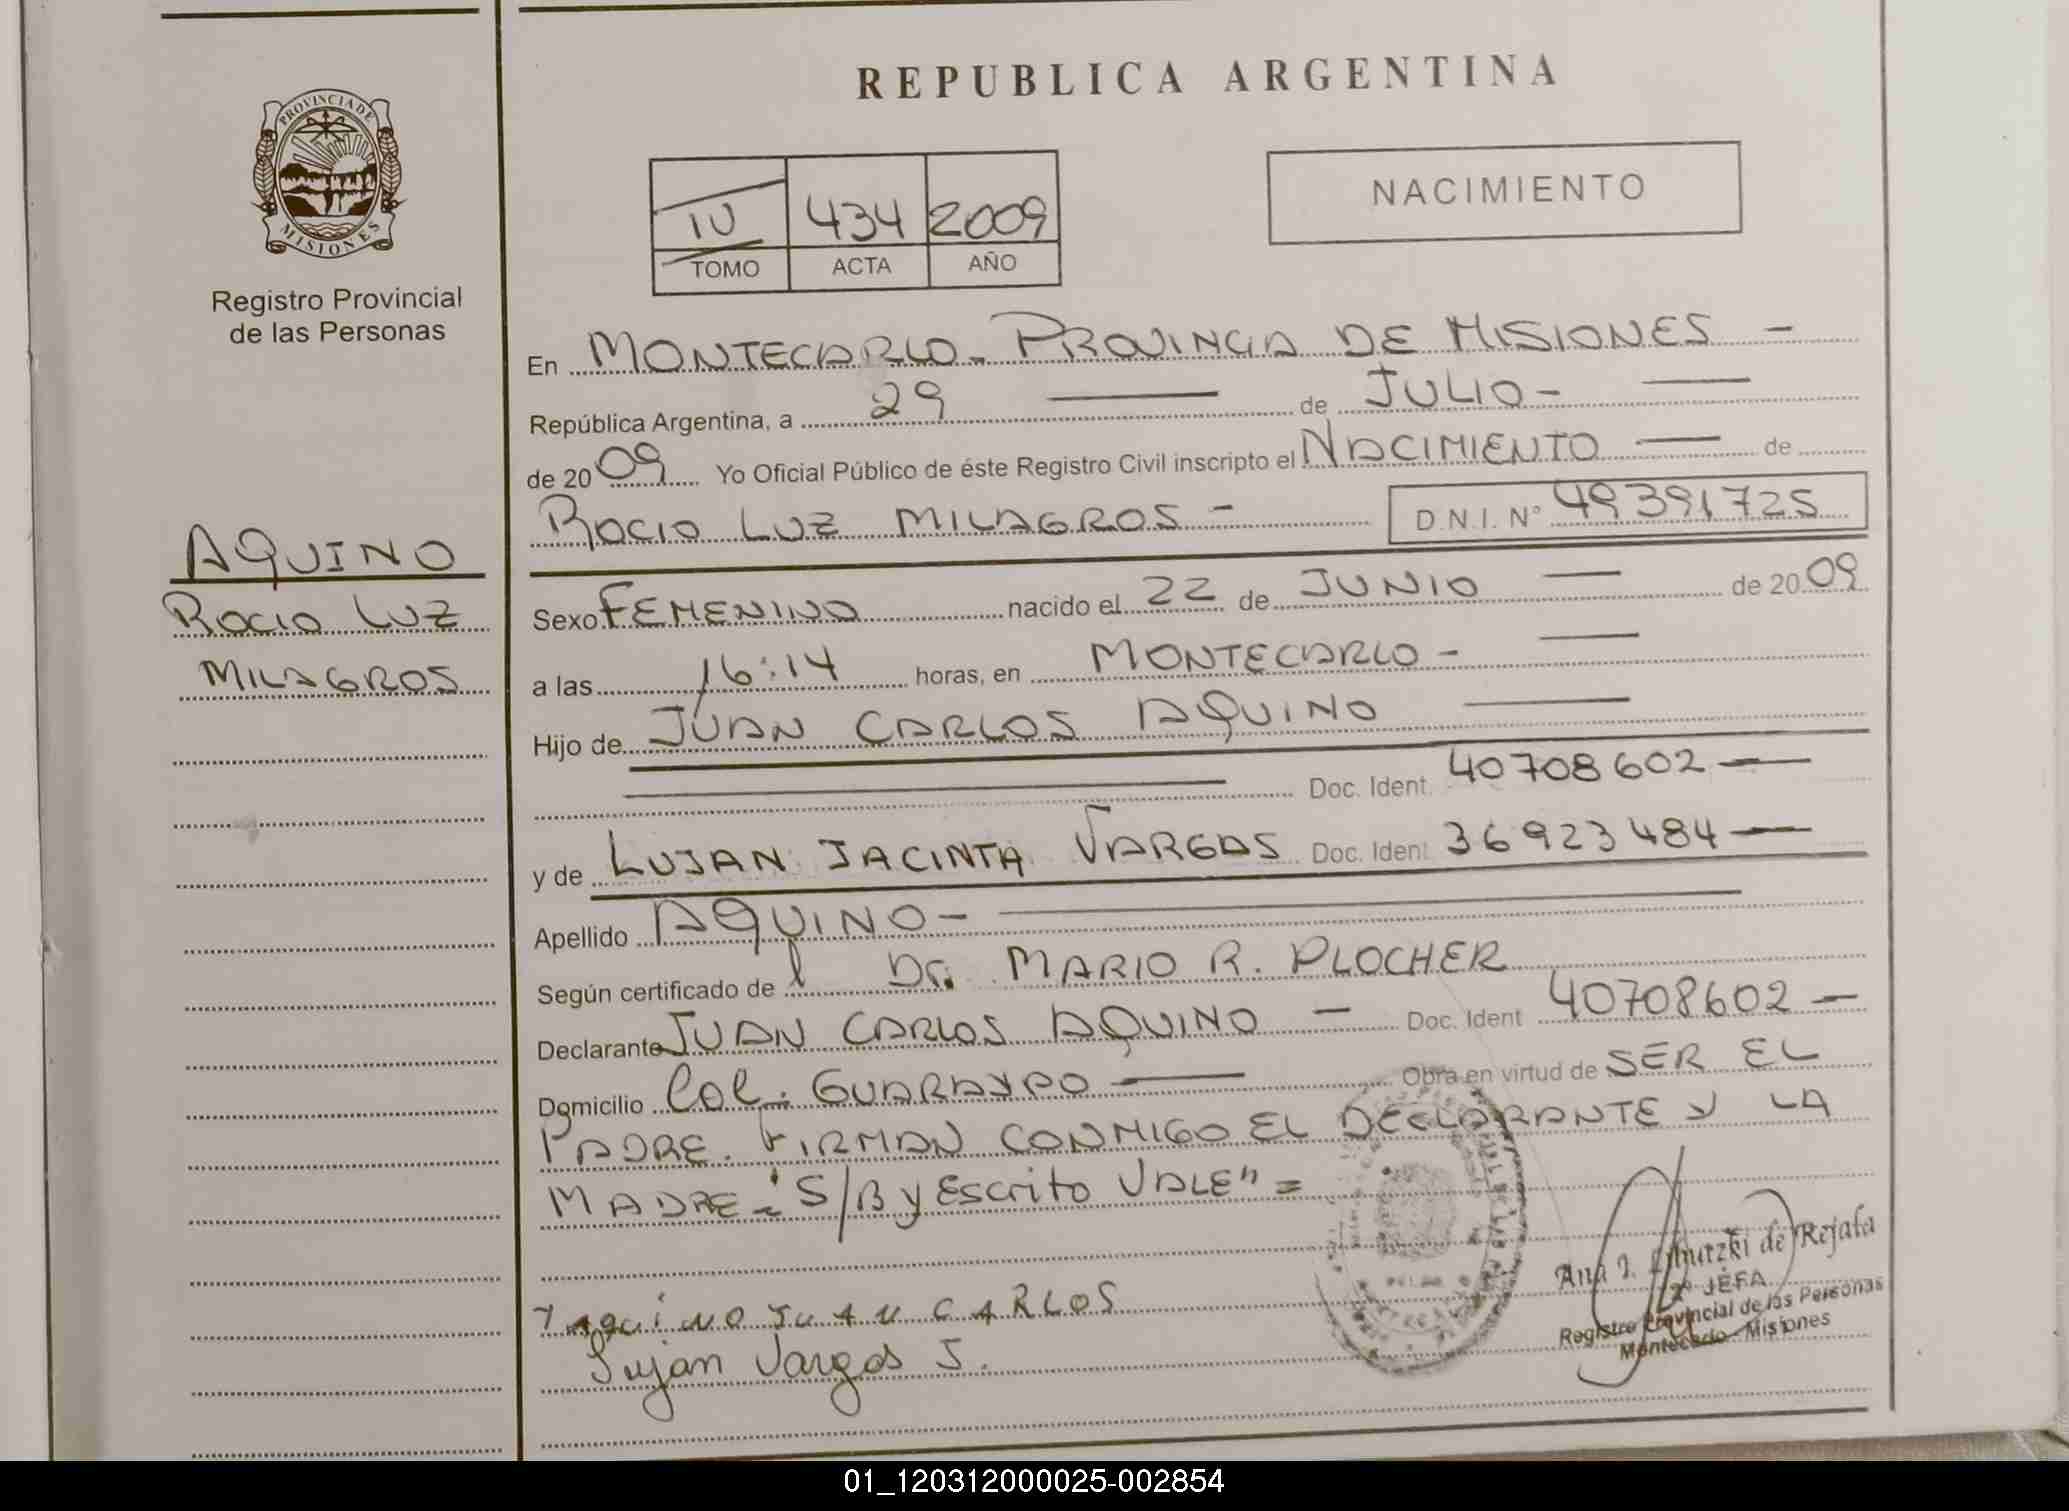 REPUBLICA ARGENTINA
PROVINCIA DE
MISIONES
Registro Provincial
de las Personas
IV 434 2009
TOMO ACTA AÑO
NACIMIENTO
En MONTECARLO - PROVINCIA DE MISIONES -
República Argentina, a 29 de JULIO -
de 2009 Yo Oficial Público de éste Registro Civil inscripto el NACIMIENTO de
ROCIO LUZ MILAGROS - D.N.I. Nº 49391725
AQUINO
ROCIO LUZ
MILAGROS
Sexo FEMENINO nacido el 22 de JUNIO de 2009
a las 16:14 horas, en MONTECARLO -
Hijo de JUAN CARLOS AQUINO
Doc. Ident. 40708602
y de LUJAN JACINTA VARGAS Doc. Ident 36923484
Apellido AQUINO -
Según certificado de Dr. MARIO R. PLOCHER
Declarante JUAN CARLOS AQUINO - Doc. Ident 40708602 -
Domicilio Col. GUARAYPO Obra en virtud de SER EL
PADRE. FIRMAN CONMIGO EL DECLARANTE Y LA
MADRE - "S/B y Escrito VALE" =
Aquino JUAN CARLOS
Lujan Vargas J.
Ana I. de Rejala
2º JEFA
Registro Provincial de las Personas
Montecarlo - Misiones
01_120312000025-002854